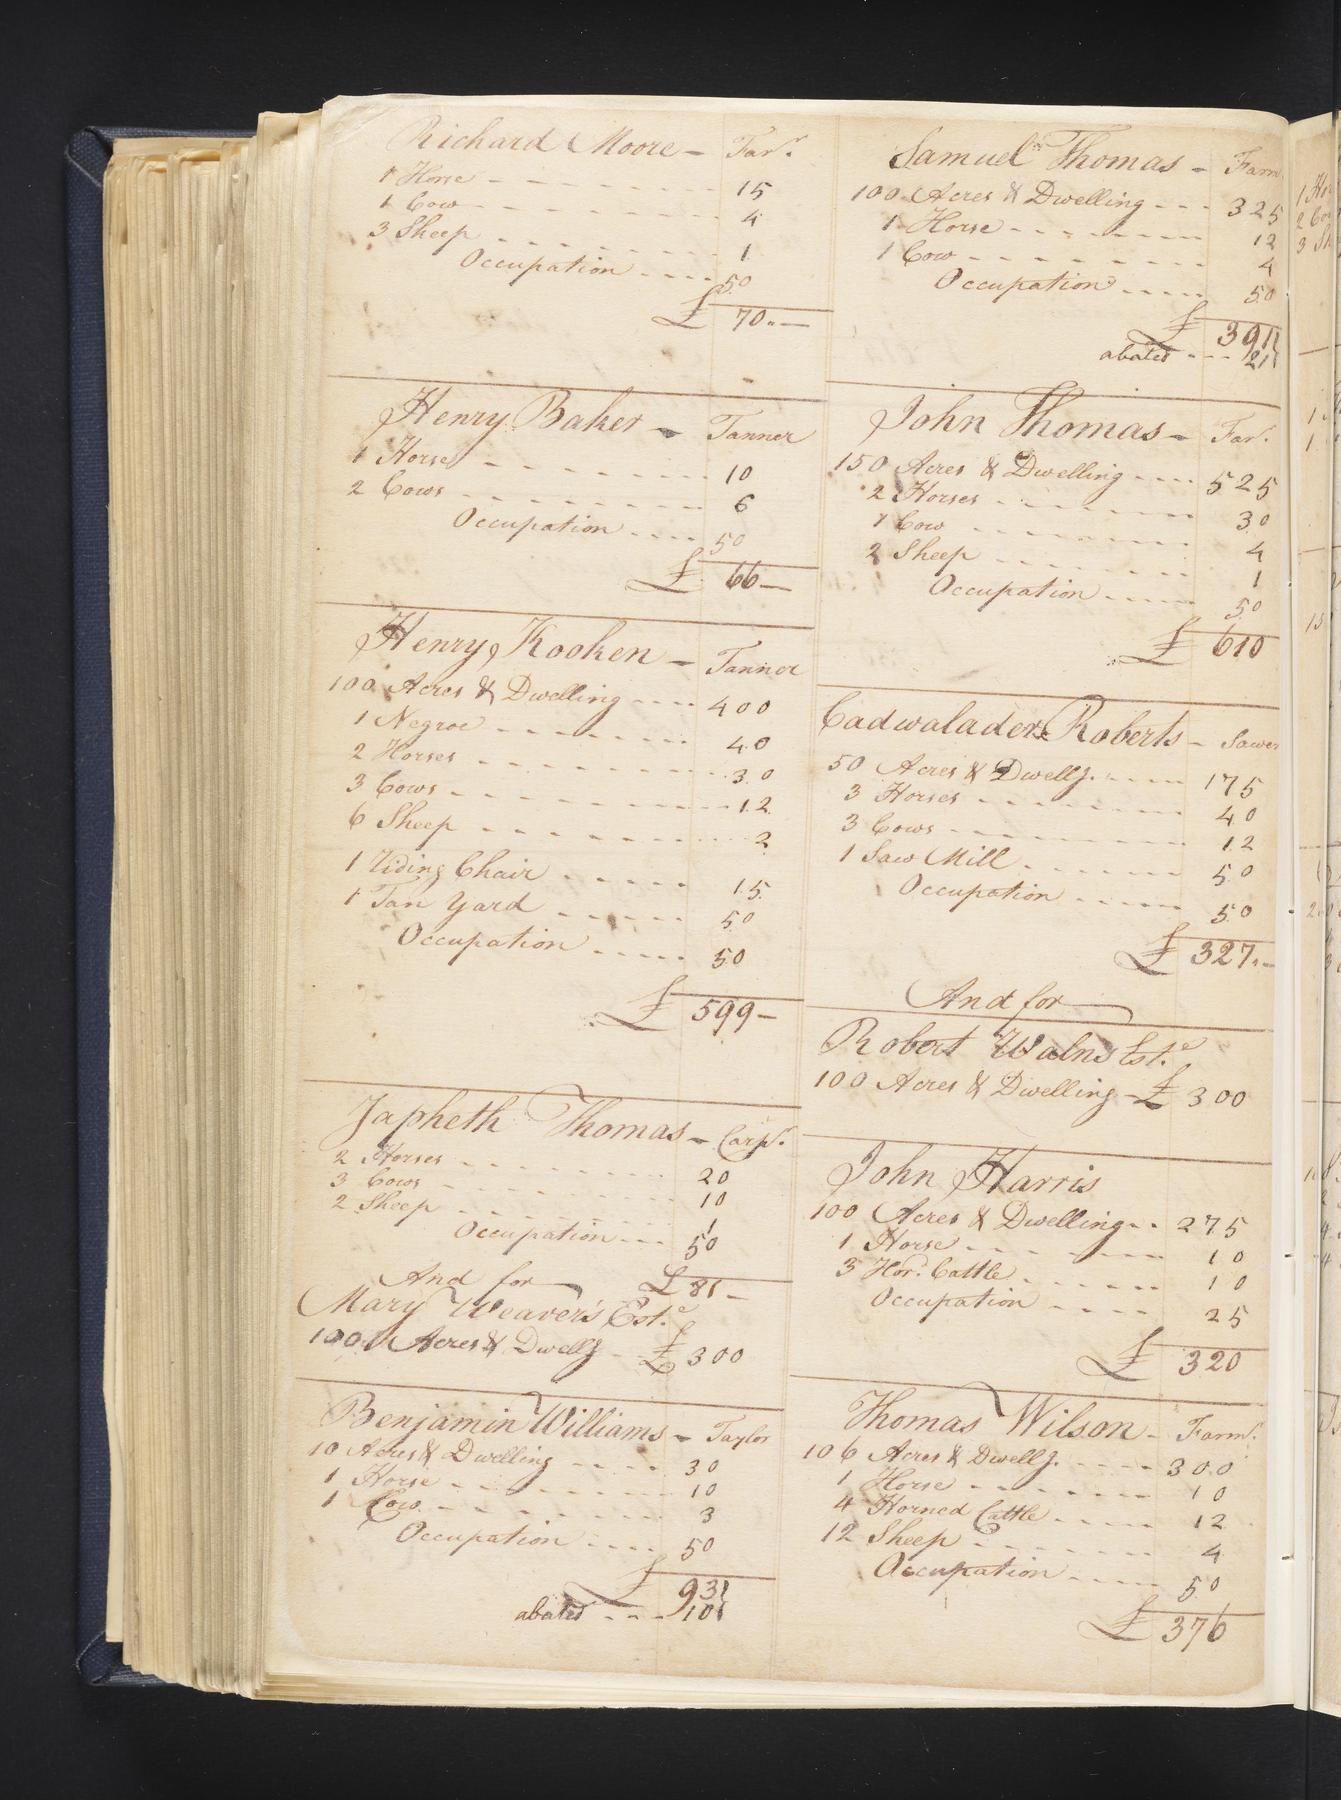 Richard Moore - Far.r
1 Horse 15
1 Cow 4
3 Sheep 1
Occupation 50
£ 70.-
Henry Baker - Tanner
1 Horse 10
2 Cows 6
Occupation 50
£ 66-
Henry Kooken - Tanner
100 Acres & Dwelling 400
1 Negroe 40
2 Horses 30
3 Cows 12
6 Sheep 2
1 Riding Chair 15
1 Tan Yard 50
Occupation 50
£ 599-
Japheth Thomas - Carp.r
2 Horses 20
3 Cows 10
2 Sheep 1
Occupation 50
And for £ 81-
Mary Weaver's Est.e
100 Acres & Dwellg £ 300
Benjamin Williams - Taylor
10 Acres & Dwelling 30
1 Horse 10
1 Cow 3
Occupation 50
£ 93
abated 10
Samuel Thomas - Farm
100 Acres & Dwelling 325
1 Horse 12
1 Cow 4
Occupation 50
£ 391
abated 21
John Thomas - Far.
150 Acres & Dwelling 525
2 Horses 30
1 Cow 4
2 Sheep 1
Occupation 50
£ 610
Cadwalader Roberts - Sawer
50 Acres & Dwellg. 175
3 Horses 40
3 Cows 12
1 Saw Mill 50
Occupation 50
£ 327.-
And for
Robert Walns Est.e
100 Acres & Dwelling - £ 300
John Harris
100 Acres & Dwelling 275
1 Horse 10
3 Hor.d Cattle 10
Occupation 25
£ 320
Thomas Wilson - Farm.r
106 Acres & Dwellg. 300
1 Horse 10
4 Horned Cattle 12
12 Sheep 4
Occupation 50
£ 376